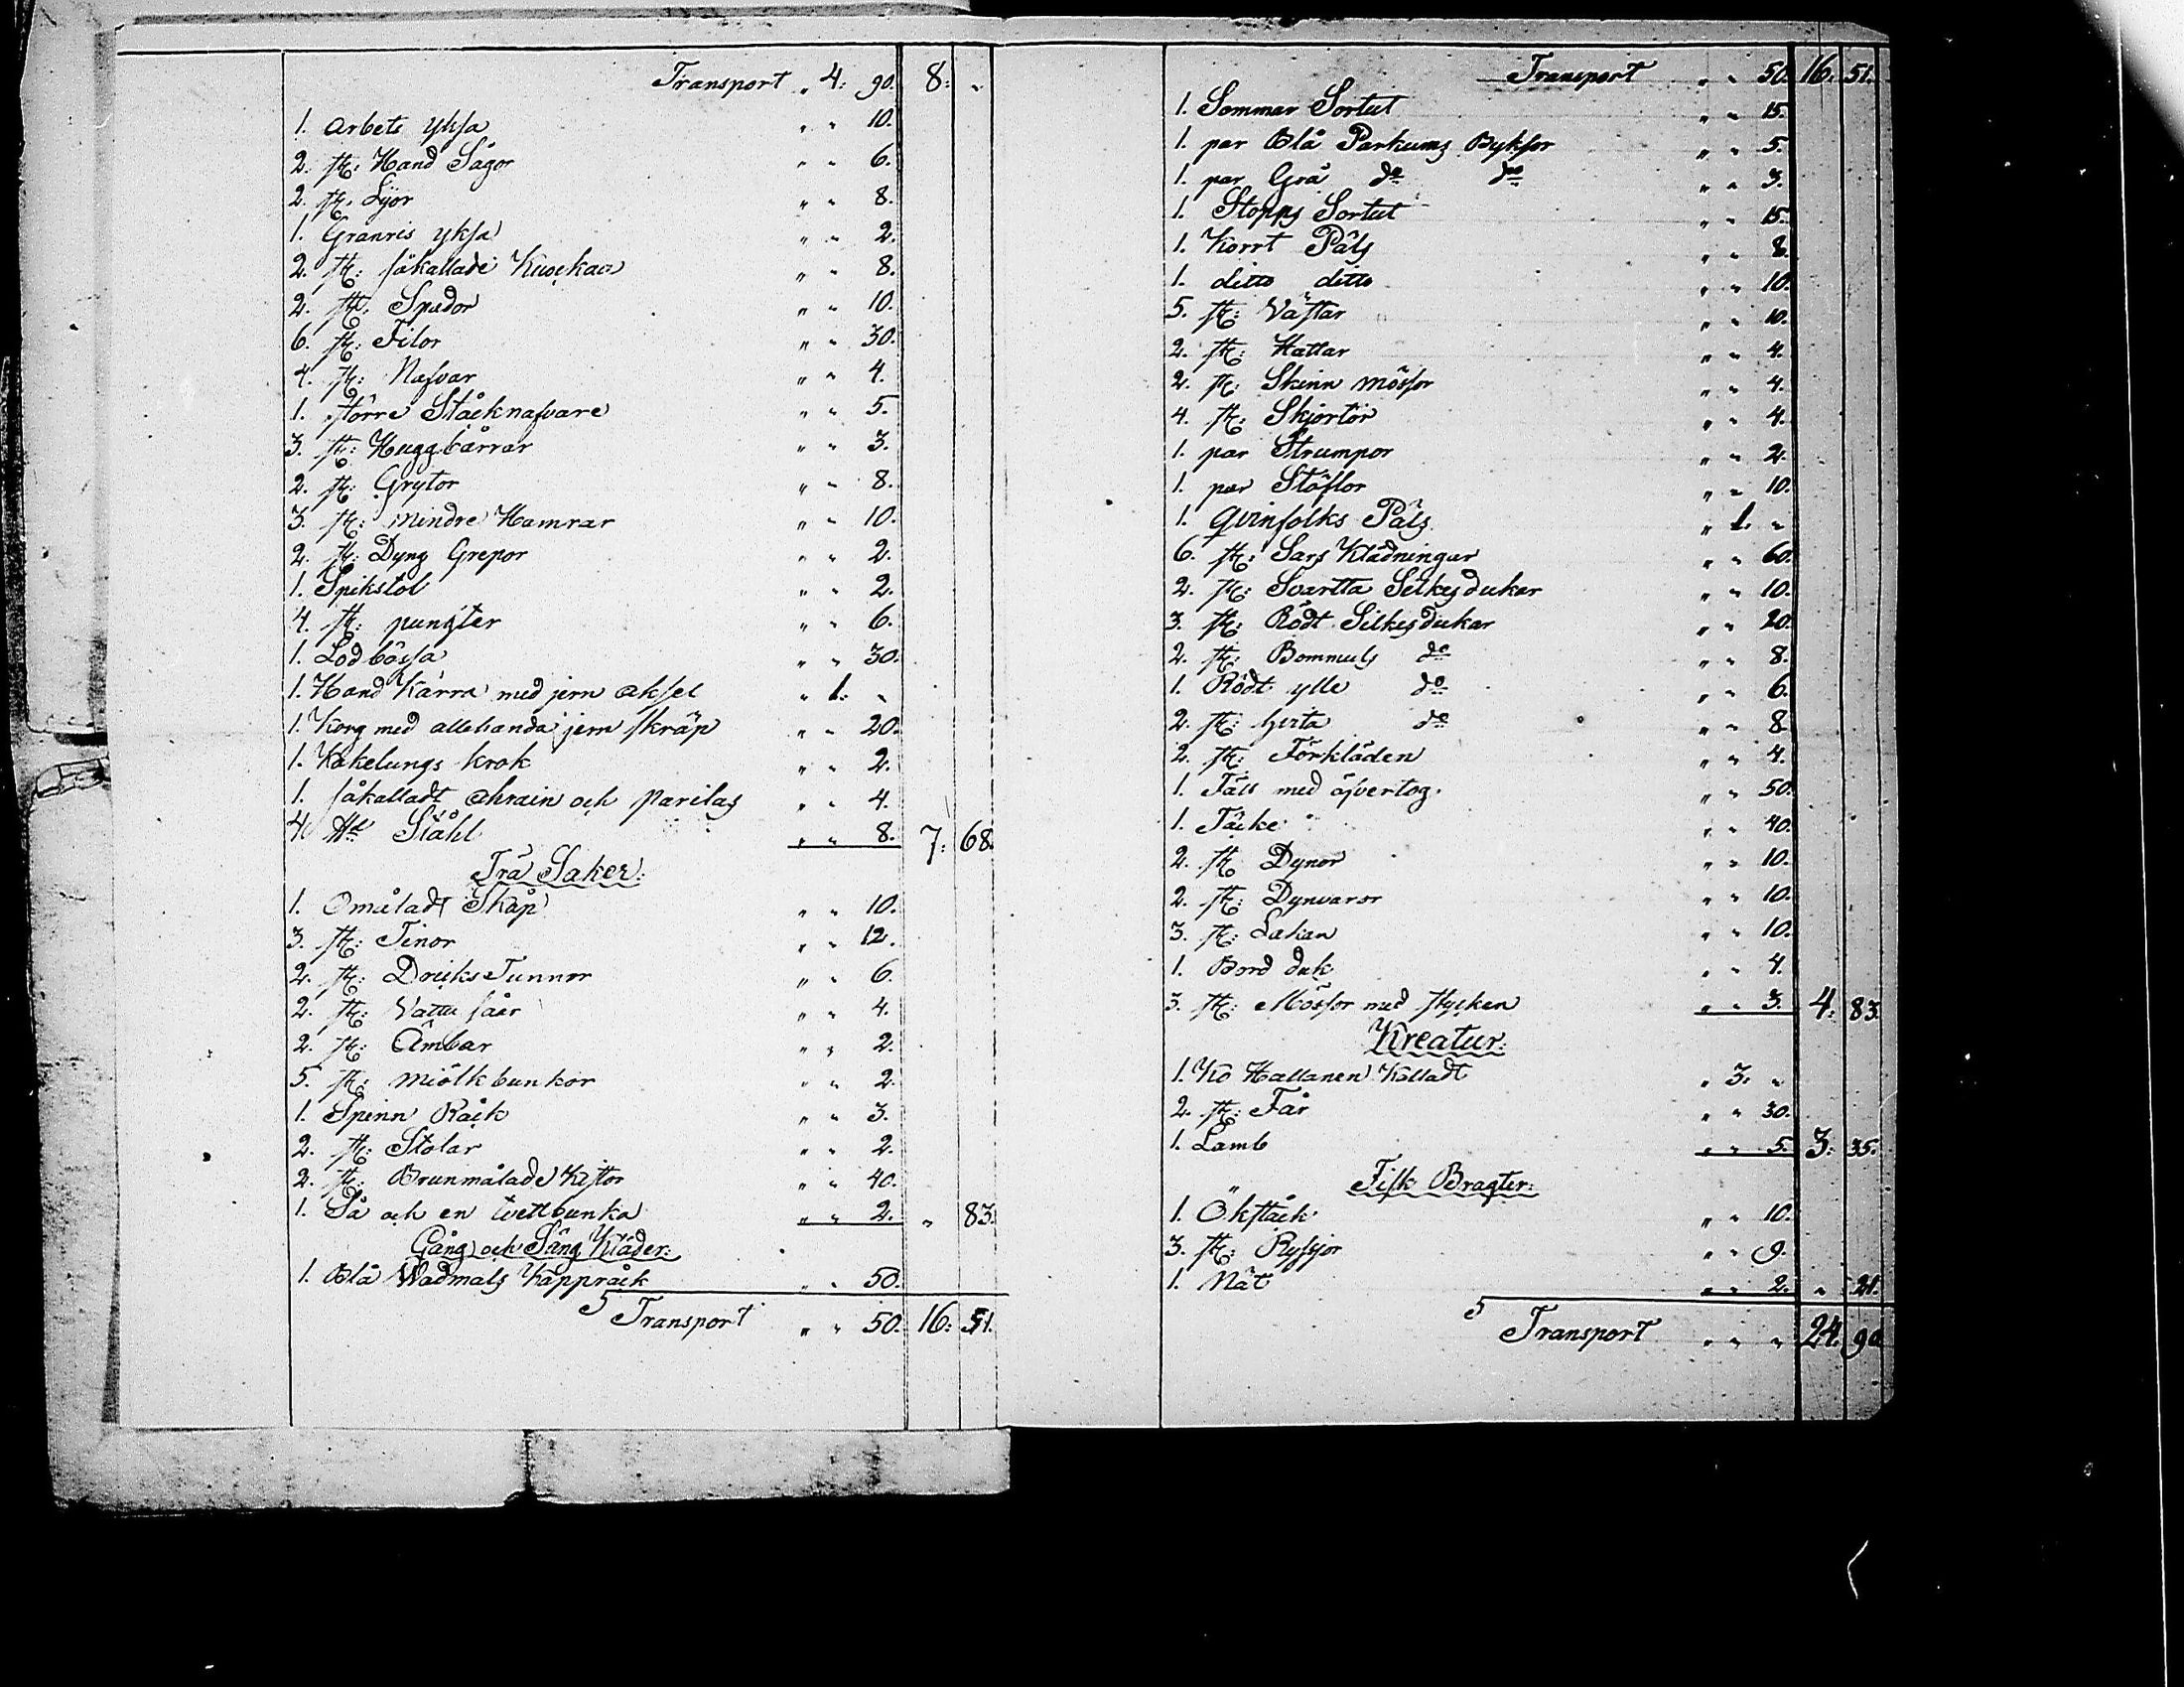 Transport „ 4: 90. 8: „
1. Arbets yksa „ „ 10.
2. st: Hand Sågor „ „ 6.
2. st. Lyor „ „ 8.
1. Granris yksa „ „ 2.
2. st: såkallade „ „ 8.
2. st. Spador „ „ 10.
6. st: Filor „ „ 30.
4. st: Nafvar „ „ 4.
1. större Ståcknafvare „ „ 5.
3. st: Huggbårrar „ „ 3.
2. st: Grytor „ „ 8.
3. st: mindre Hamrar „ „ 10.
2. st: Dyng Grepor „ „ 2.
1. Spikstol „ „ 2.
4. st: pungter „ „ 6.
1. Lodbössa „ „ 30.
1. Hand Kärra med jern aksel „ 1: „
1. Korg med allehanda jern skräp „ „ 20.
1. Kakelungs krok „ „ 2.
1. såkalladt ahrain och parilas „ „ 4.
4. Stähl „ „ 8. 7: 68.
Trä Saker:
1. Omåladt Skåp „ „ 10.
3. st: Tinor „ „ 12.
2. st: Dricks Tunnor „ „ 6.
2. st: Vattu såar „ „ 4.
2. st: Ämbar „ „ 2.
5. st: miölkbunkor „ „ 2.
1. Spinn Råck „ „ 3.
2. st: Stolar „ „ 2.
2. st: Brunmålade Kistor „ „ 40.
1. Så och en tvettbunka „ „ 2. „ 83.
Gång och Säng Kläder:
1. Blå Wadmals Kappråck „ „ 50.
Transport „ „ 50. 16: 51.
Transport „ „ 50. 16. 51.
1. Sommar Sortut „ „ 15.
1. par Blå Parkums Byksor „ „ 5.
1. par Grå do do „ „ 3.
1. Stopps Sortut „ „ 15.
1. Korrt Päls „ „ 8.
1. ditto ditto „ „ 10.
5. st: Västar „ „ 10.
2. st: Hattar „ „ 4.
2. st: Skinn mössor „ „ 4.
4. st: Skjortor „ „ 4.
1. par Strumpor „ „ 2.
1. par Stöflor „ „ 10.
1. qvinfolks Päls „ 1. „
6. st: Sars Klädningar „ „ 60.
2. st: Svartta Silkesdukar „ „ 10.
3. st: Rödt Silkesdukar „ „ 20.
2. st: Bommuls do „ „ 8.
1. Rödt ylle do „ „ 6.
2. st: hvita do „ „ 8
2. st: Förkläden „ „ 4.
1. Fäll med öfvertog. „ „ 50.
1. Täcke „ „ 40.
2. st Dynor „ „ 10.
2. st: Dynvaror „ „ 10.
3. st: Lakan „ „ 10.
1. Bord duk „ „ 4.
3. st: Mössor med stycken „ „ 3. 4: 83.
Kreatur:
1. Ko Hallanen Kalladt „ 3. „
2. st: Får „ „ 30.
1. Lamb „ „ 5. 3: 35.
Fisk Bragter:
1. Ökståck „ „ 10.
3. st: Ryssjor „ „ 9.
1. Nät „ „ 2. „ 21.
Transport „ „ „ 24. 90